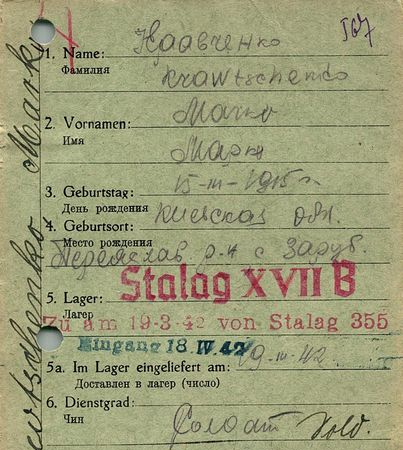 Кравченко
1. Name:
Фамилия
Krawtschenko
Марко
2. Vornamen:
Имя
Марко
3. Geburtstag: 15-III-1915 г.
День рождения
4. Geburtsort: Киевская обл.
Место рождения
Переяслав р-н с Заруб.
Stalag XVII B
5. Lager:
Лагер
Zu am 19-3-42 von Stalag 355
Eingang 18 IV. 42
5a. Im Lager eingeliefert am: 19-III-42
Доставлен в лагер (число)
6. Dienstgrad:
Чин
Солдат Sold.